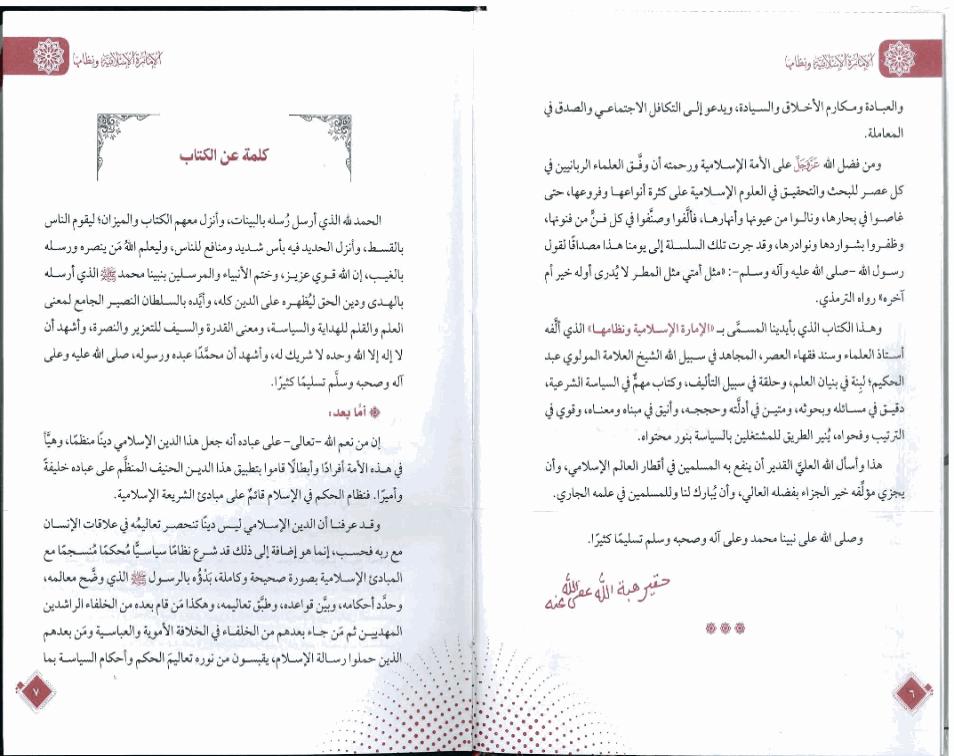 الإمارة الإسلامية ونظامها
والعبادة ومكارم الأخلاق والسيادة، ويدعو إلى التكافل الاجتماعي والصدق في
المعاملة.
ومن فضل الله عَزَّوَجَلَّ على الأمة الإسلامية ورحمته أن وفَّق العلماء الربانيين في
كل عصر للبحث والتحقيق في العلوم الإسلامية على كثرة أنواعها وفروعها، حتى
غاصوا في بحارها، ونالوا من عيونها وأنهارها، فألَّفوا وصنَّفوا في كل فنٍّ من فنونها،
وظفروا بشواردها ونوادرها، وقد جرت تلك السلسلة إلى يومنا هذا مصداقًا لقول
رسول الله -صلى الله عليه وآله وسلم-: «مثل أمتي مثل المطر لا يُدرى أوله خير أم
آخره» رواه الترمذي.
وهذا الكتاب الذي بأيدينا المسمَّى بـ «الإمارة الإسلامية ونظامها» الذي ألَّفه
أستاذ العلماء وسند فقهاء العصر، المجاهد في سبيل الله الشيخ العلامة المولوي عبد
الحكيم؛ لبِنة في بنيان العلم، وحلقة في سبيل التأليف، وكتاب مهمٌّ في السياسة الشرعية،
دقيق في مسائله وبحوثه، ومتين في أدلَّته وحججه، وأنيق في مبناه ومعناه، وقوي في
الترتيب وفحواه، يُنير الطريق للمشتغلين بالسياسة بنور محتواه.
هذا وأسأل الله العليَّ القدير أن ينفع به المسلمين في أقطار العالم الإسلامي، وأن
يجزي مؤلِّفه خير الجزاء بفضله العالي، وأن يُبارك لنا وللمسلمين في علمه الجاري.
وصلى الله على نبينا محمد وعلى آله وصحبه وسلم تسليمًا كثيرًا.
حقير هبة الله عفى الله عنه
٦
الإمارة الإسلامية ونظامها
كلمة عن الكتاب
الحمد لله الذي أرسل رُسله بالبينات، وأنزل معهم الكتاب والميزان؛ ليقوم الناس
بالقسط، وأنزل الحديد فيه بأس شديد ومنافع للناس، وليعلم اللهُ مَن ينصره ورسله
بالغيب، إن الله قوي عزيز، وختم الأنبياء والمرسلين بنبينا محمد ﷺ الذي أرسله
بالهدى ودين الحق ليُظهره على الدين كله، وأيَّده بالسلطان النصير الجامع لمعنى
العلم والقلم للهداية والسياسة، ومعنى القدرة والسيف للتعزير والنصرة، وأشهد أن
لا إله إلا الله وحده لا شريك له، وأشهد أن محمَّدًا عبده ورسوله، صلى الله عليه وعلى
آله وصحبه وسلَّم تسليمًا كثيرًا.
أمّا بعد:
إن من نعم الله -تعالى- على عباده أنه جعل هذا الدين الإسلامي دينًا منظمًا، وهيَّأ
في هذه الأمة أفرادًا وأبطالًا قاموا بتطبيق هذا الدين الحنيف المنظَّم على عباده خليفةً
وأميرًا. فنظام الحكم في الإسلام قائمٌ على مبادئ الشريعة الإسلامية.
وقد عرفنا أن الدين الإسلامي ليس دينًا تنحصر تعاليمُه في علاقات الإنسان
مع ربه فحسب، إنما هو إضافة إلى ذلك قد شرع نظامًا سياسيًّا مُحكمًا مُنسجمًا مع
المبادئ الإسلامية بصورة صحيحة وكاملة، بَدْؤُه بالرسول ﷺ الذي وضَّح معالمه،
وحدَّد أحكامه، وبيَّن قواعده، وطبَّق تعاليمه، وهكذا مَن قام بعده من الخلفاء الراشدين
المهديين ثم مَن جاء بعدهم من الخلفاء في الخلافة الأموية والعباسية ومَن بعدهم
الذين حملوا رسالة الإسلام، يقبسون من نوره تعاليمَ الحكم وأحكام السياسة بما
٧